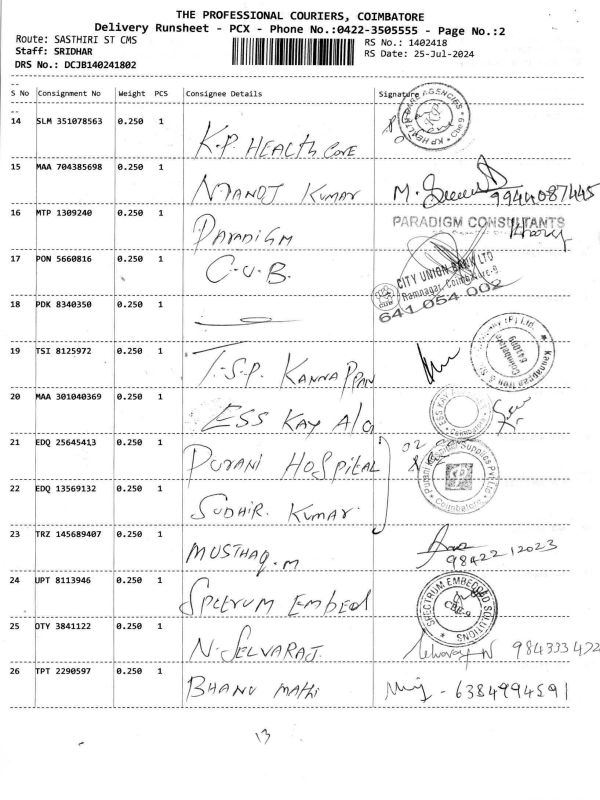 THE PROFESSIONAL COURIERS, COIMBATORE
Delivery Runsheet - PCX - Phone No.:0422-3505555 - Page No.:2
Route: SASTHIRI ST CMS
RS No.: 1402418
Staff: SRIDHAR
RS Date: 25-Jul-2024
DRS No.: DCJB140241802
S No Consignment No Weight PCS Consignee Details Signature
14 SLM 351078563 0.250 1 K.P. HEALTH CARE
15 MAA 704385698 0.250 1 MANOJ KUMAR M. 9944087445
16 MTP 1309240 0.250 1 PARADIGM PARADIGM CONSULTANTS
17 PON 5660816 0.250 1 C.U.B. CITY UNION BANK LTD
Ramnagar, Coimbatore-9
641 054 002
18 PDK 8340350 0.250 1
19 TSI 8125972 0.250 1 T.S.P. KANNAPPAN
20 MAA 301040369 0.250 1 ESS KAY A/C
21 EDQ 25645413 0.250 1 PURANI HOSPITAL
22 EDQ 13569132 0.250 1 SUDHIR. KUMAR
23 TRZ 145689407 0.250 1 MUSTHAQ.M 9842212023
24 UPT 8113946 0.250 1 SPECTRUM EMBED SPECTRUM EMBEDDED SOLUTIONS
CBE-9
25 OTY 3841122 0.250 1 N. SELVARAJ. Selvaraj N
26 TPT 2290597 0.250 1 BHANU MATHI - 6384994591
13